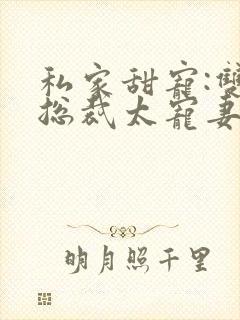 私家甜寵:雙
総裁太寵妻
明月照千里